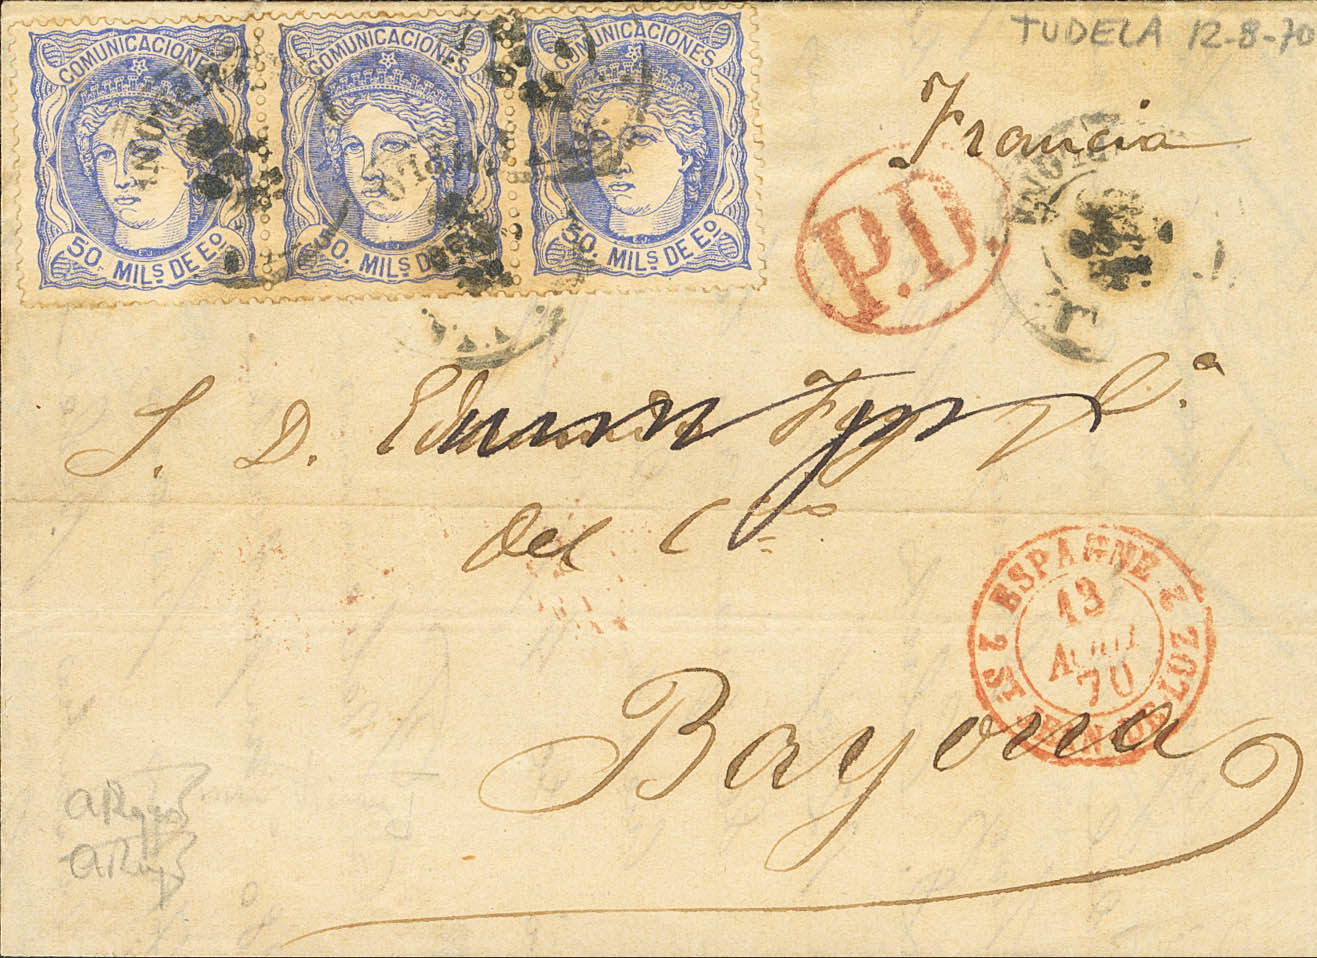 COMUNICACIONES
50 MILS. DE Eº.
COMUNICACIONES
50. MILS. DE Eº.
COMUNICACIONES
50. MILS. DE Eº.
TUDELA 12-8-70
Francia
P.D.
S. D. y C.ª
del C
ESPAGNE
13
AOUT
70
2 ST JEAN DE LUZ 2
Bayona